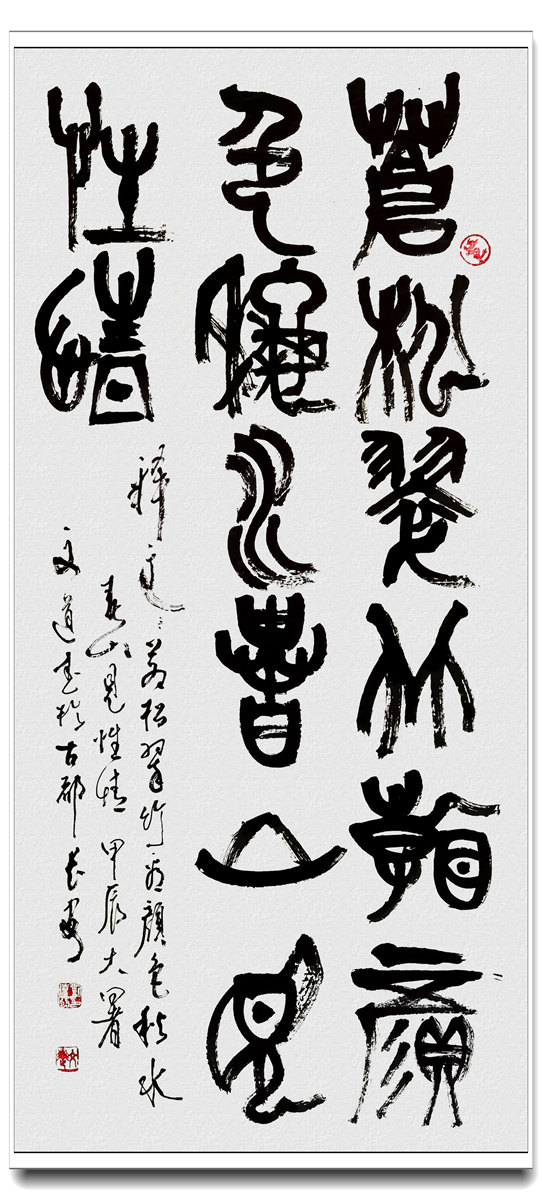 蒼松翠竹顏
色龝水春山見
性情
釋文蒼松翠竹顏色秋水
春山見性情 甲辰大暑
文道書於古都長安